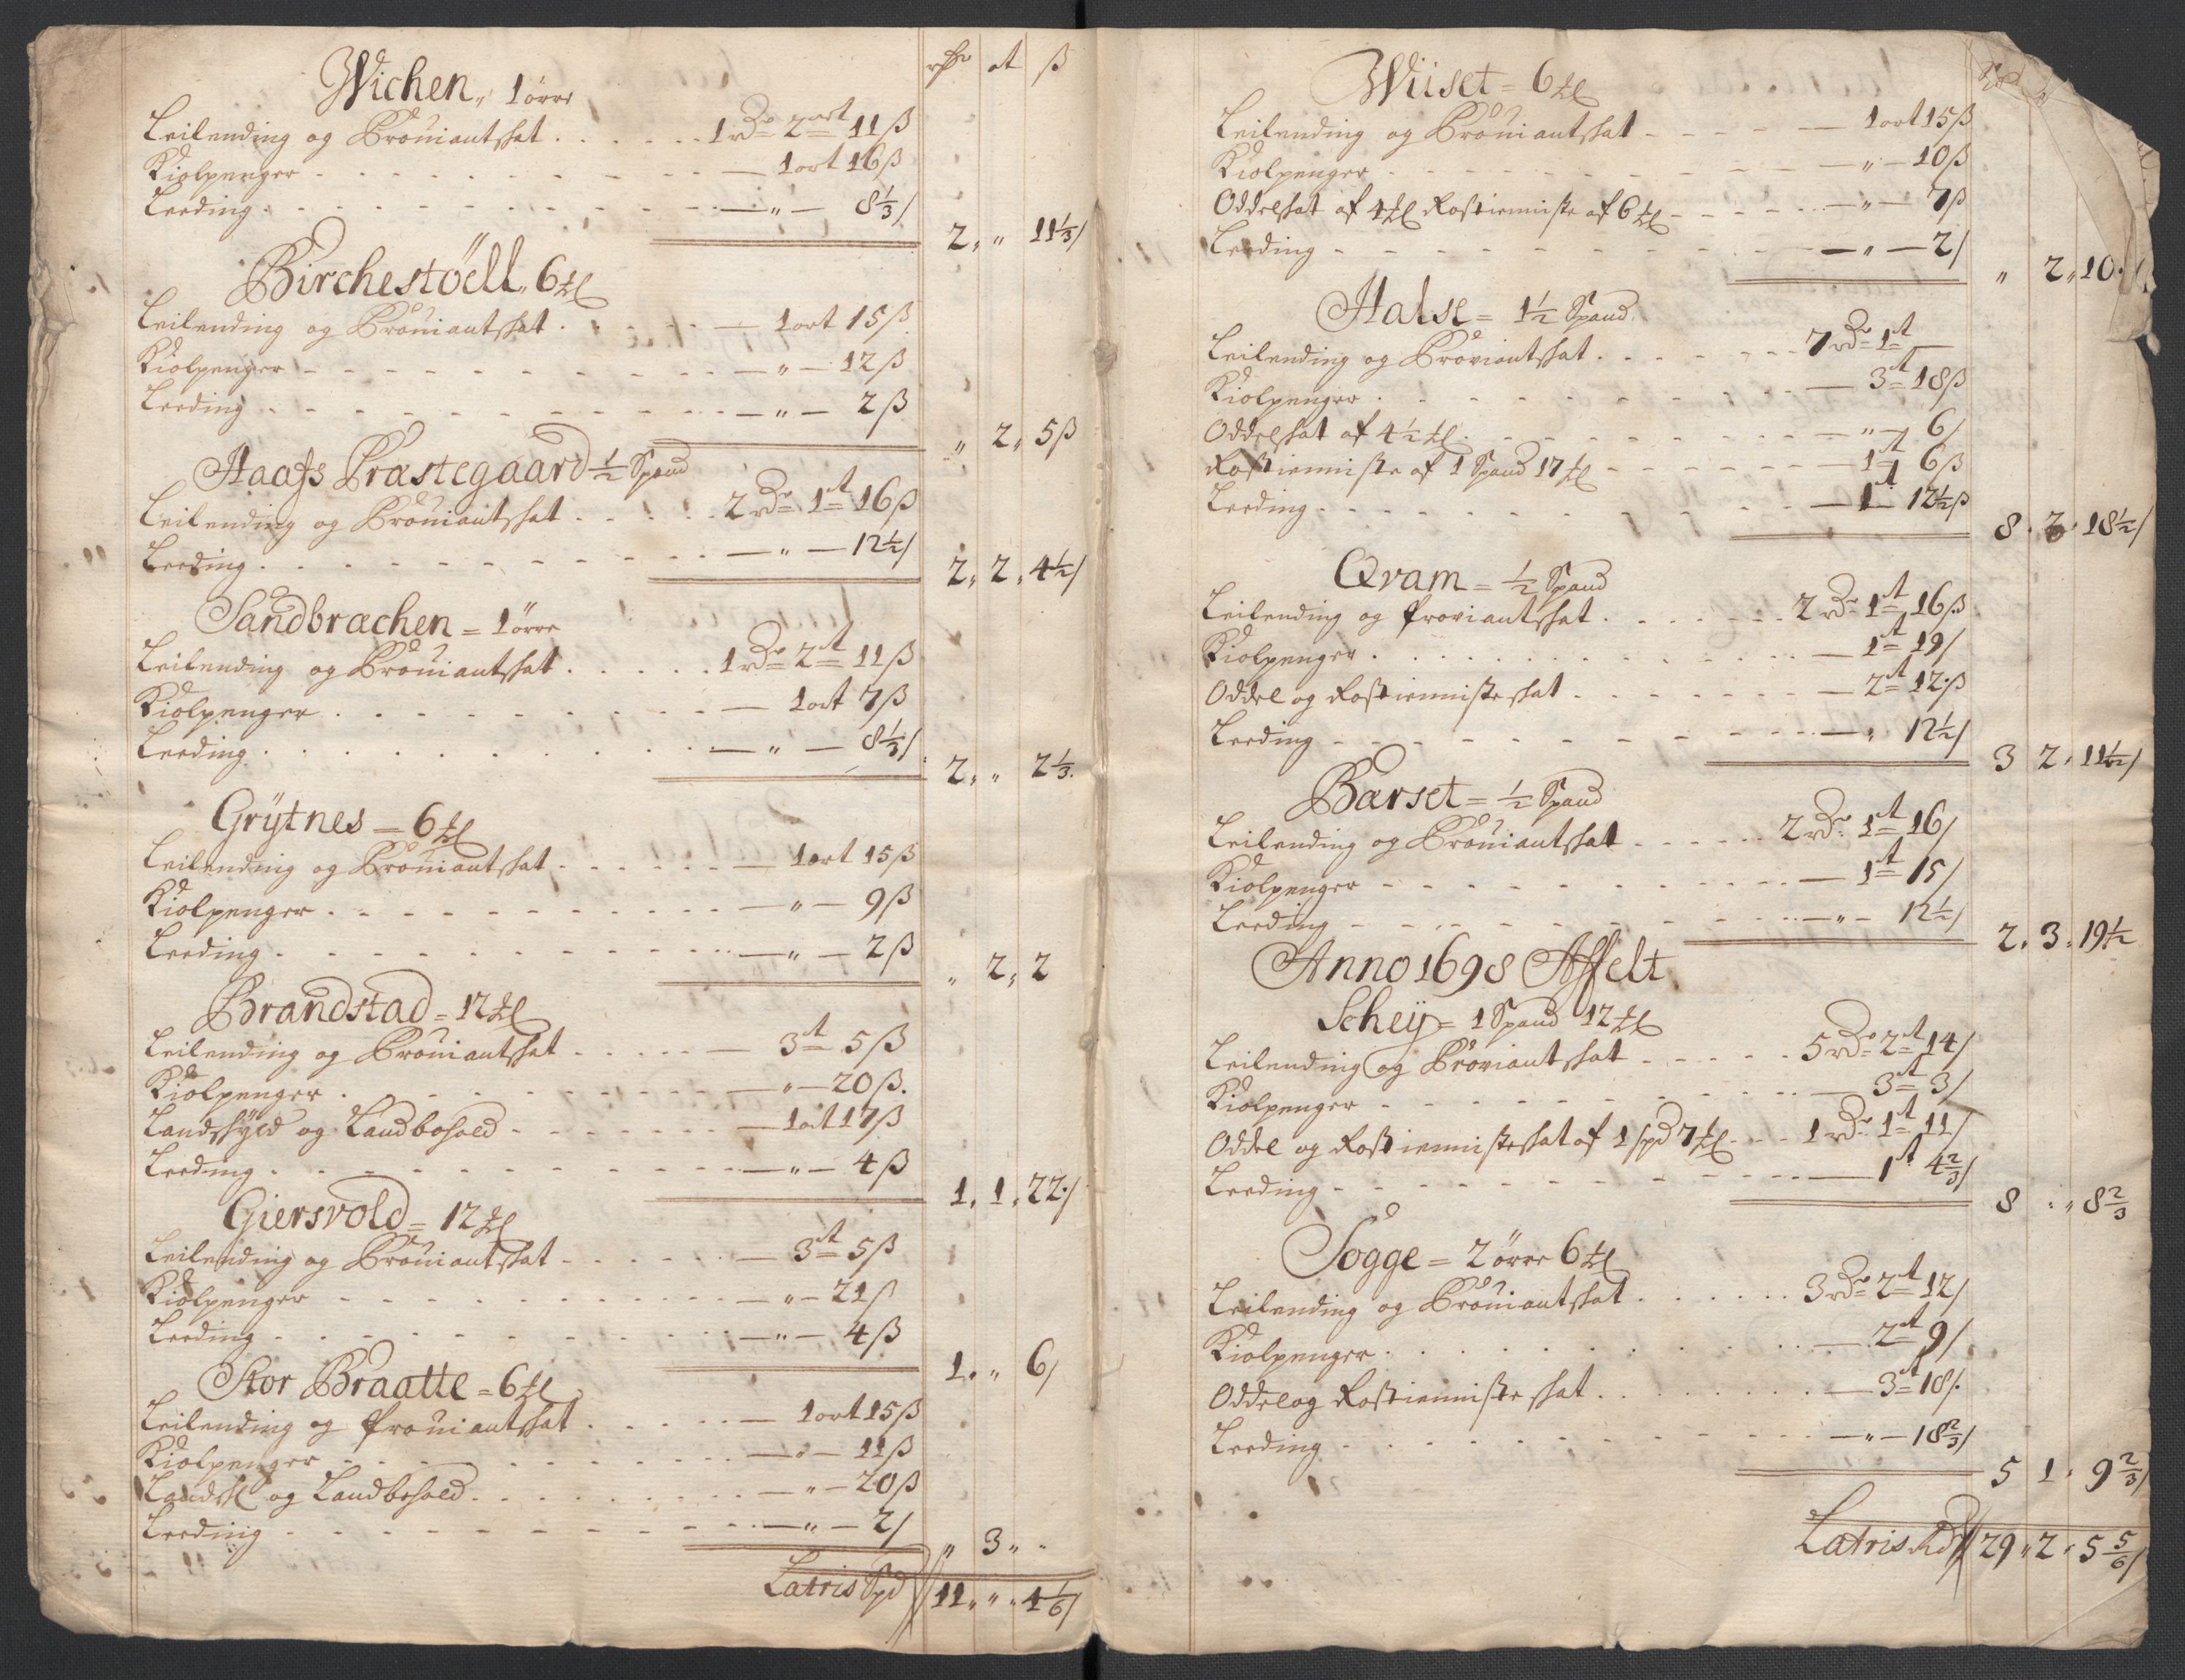 rdr ort ß
Wichen, 1 örre
Leilending og Prouiantskat . . . . . . 1 rdr 2 ort 11 ß
Kiolpenger . . . . . . . . — 1 ort 16 ß
Leeding . . . . . . . . . — „ — 8⅓/
2 „ „ 11⅓/
Birchestöell, 6
Leilending og Prouiantskat . . . . . — 1 ort 15 ß
Kiolpenger . . . . . . . — „ — 12 ß
Leeding . . . . . . . . . — „ — 2 ß
„ 2 „ 5 ß
Haafs Præstegaard ½ Spand
Leilending og Prouiantskat . . . . 2 rd 1 ort 16 ß
Leeding . . . . . . . . — „ — 12½/
2 „ 2 „ 4½/
Sandbrachen = 1 örre
Leilending og Prouiantskat . . . . . 1 rd 2 ort 11 ß
Kiolpenger . . . . . . . — 1 ort 7 ß
Leeding . . . . . . . . — „ — 8⅓/
2 „ „ 2⅓
Grÿtnes = 6
Leilending og Prouiantskat . . . . . — 1 ort 15 ß
Kiolpenger . . . . . . . . — „ — 9 ß
Leeding . . . . . . . . — „ — 2 ß
„ 2 „ 2
Brandstad = 12
Leilending og Prouiantskat . . . . . — 3 ort 5 ß
Kiolpenger . . . . . . . . — „ — 20 ß.
Landskÿld og Landbohold . . . . . . — 1 ort 17 ß
Leeding . . . . . . . . — „ — 4 ß
1 „ 1 „ 22/
Giersvold = 12
Leilending og Prouiantskat . . . . . . — 3 ort 5 ß
Kiolpenger . . . . . . . . — „ — 21 ß
Leeding . . . . . . . . . — „ — 4 ß
1 „ „ 6/
Stor Braatte = 6
Leilending og Prouiantskat . . . . . — 1 ort 15 ß
Kiolpenger . . . . . . . . — „ — 11 ß
Landskl og Landbohold . . . . . . — „ — 20 ß
Leeding . . . . . . . . — „ — 2/
„ 3 „ „
Latris Spd 11 „ „ 4⅙/
Wiiset = 6
Leilending og Prouiantskat . . . . . — 1 ort 15 ß
Kiolpenger . . . . . . . . — „ — 10 ß
Oddelskat af 4 Rostienniste af 6 . . . . — „ — 7 ß
Leeding . . . . . . . . . — „ — 2/
„ 2 „ 10
Halse = 1½ Spand
Leilending og Proviantskat . . . . . . 7 rd 1 ort —
Kiolpenger . . . . . . . . — 3 ort 18 ß
Oddelskat af 4½ . . . . . . . — „ — 6/
Rostienniste af 1 Spand 17 . . . . . — 1 ort 6 ß
Leeding . . . . . . . . . — 1 ort 12½ ß
8 „ 2 „ 18½/
Qvam = ½ Spand
Leilending og Proviantskat . . . . . . 2 rd 1 ort 16 ß
Kiolpenger . . . . . . . . — 1 ort 19/
Oddel og Rostiennisteskat . . . . . . — 2 ort 12 ß
Leeding . . . . . . . . . — „ 12½/
3 2 „ 11½/
Bærset = ½ Spand
Leilending og Prouiantskat . . . . . 2 rd 1 ort 16/
Kiolpenger . . . . . . . . — 1 ort 15/
Leeding . . . . . . . . . — „ — 12½/
2 „ 3 „ 19½
Anno 1698 Affelt
Scheÿ = 1 Spand 12
Leilending og Proviantskat . . . . . 5 rd 2 ort 14/
Kiolpenger . . . . . . . . — 3 ort 3/
Oddel og Rostiennisteskat af 1 spd 7 . . . 1 rd 1 ort 11/
Leeding . . . . . . . . . — 1 ort 4⅔/
8 „ „ 8⅔
Sogge = 2 örre 6
Leilending og Prouiantskat . . . . . . 3 rd 2 ort 12/
Kiolpenger . . . . . . . . — 2 ort 9/
Oddel og Rostiennisteskat . . . . . . — 3 ort 18/
Leeding . . . . . . . . . — „ — 18⅔/
5 1 „ 9⅔/
Latris Rd 29 „ 2 „ 5⅚/